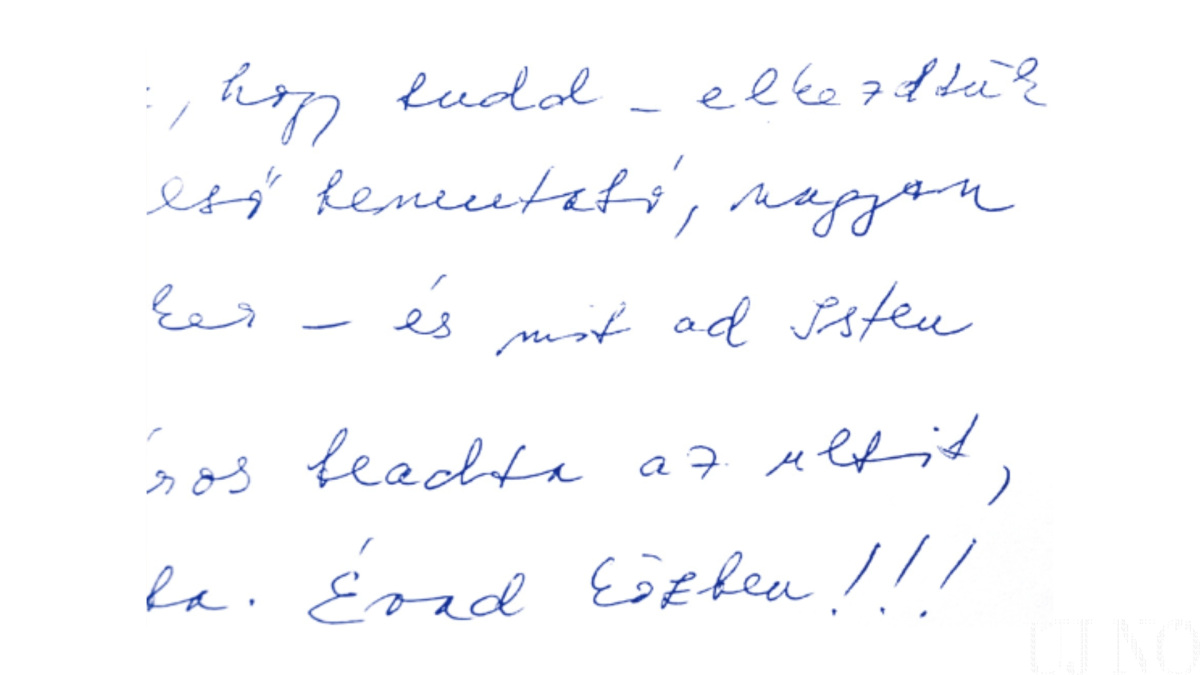 , hogy tudd – elkezdtük
eső bemutató, nagyon
ker – és mit ad Isten
áros beadta az ultit,
ba. Évad közben!!!
ÚJ NŐ